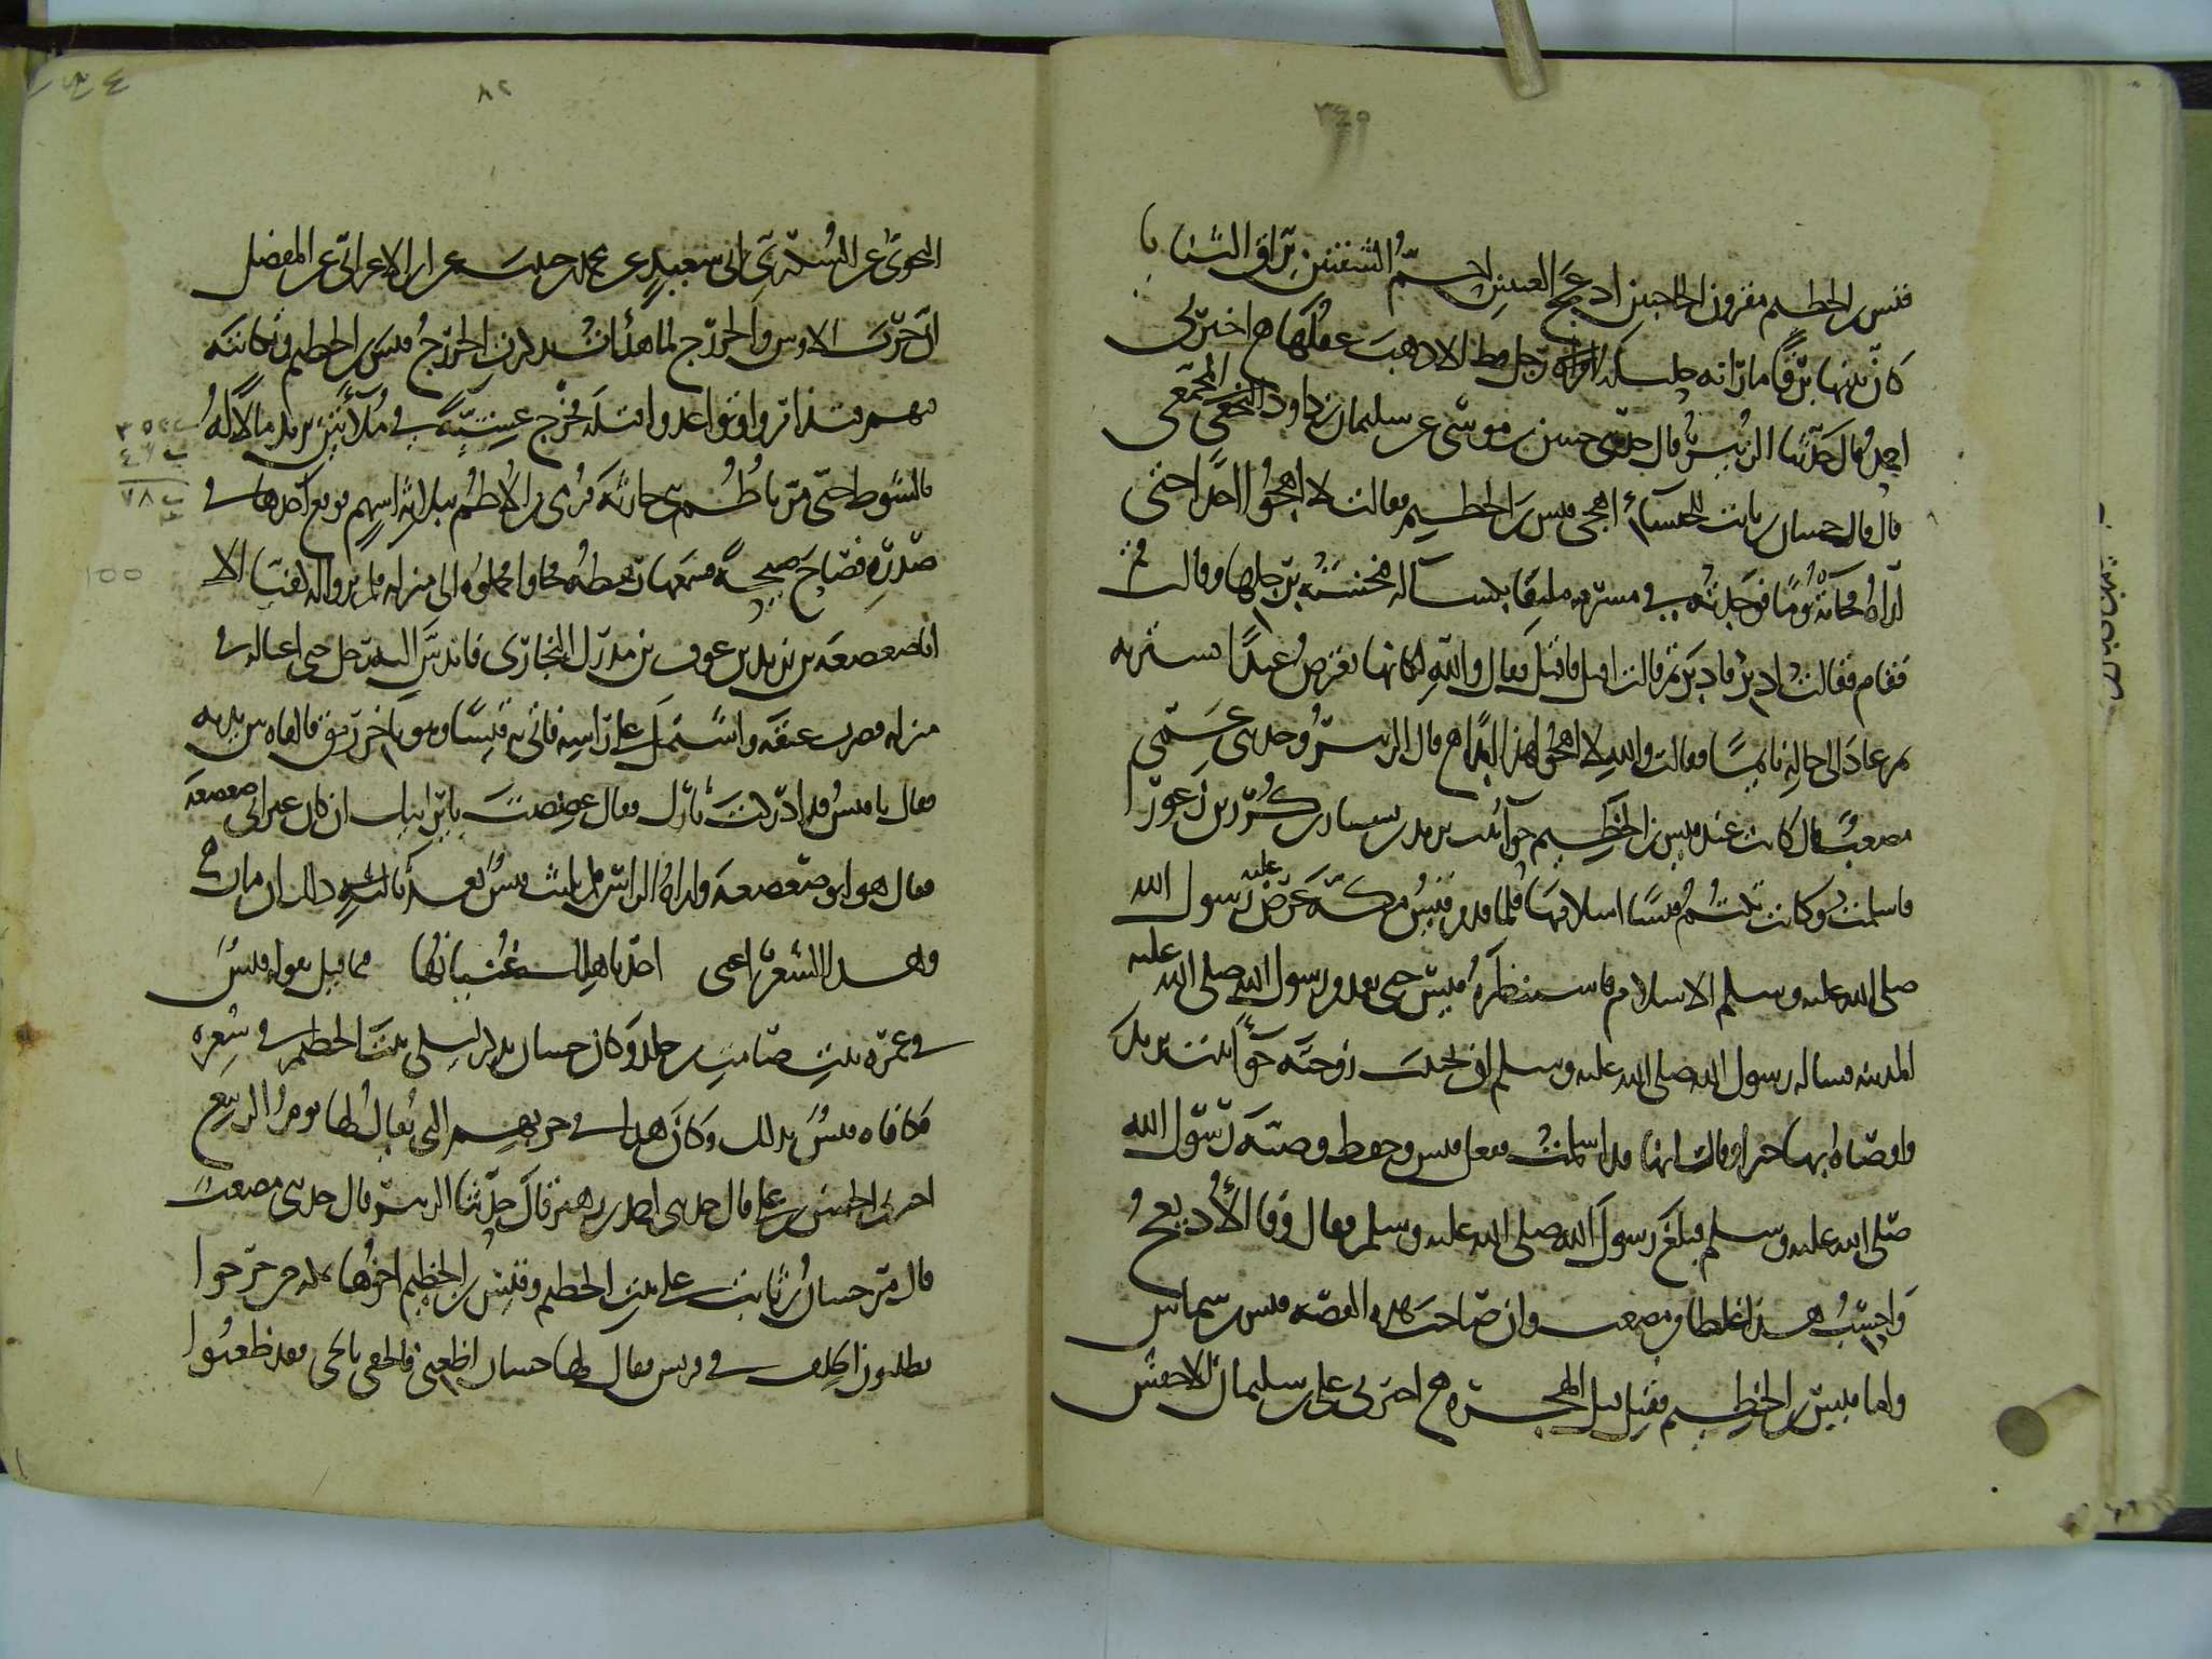 ٣٤٥
قيس بن الخطيم مقرون الحاجبين ادعج العينين احم الشفتين براق الثنايا
كان بينها برقا ما راته حليلة رجل قط الا ذهب عقلها اخبرني
احمد قال حدثنا الزبير قال حدثني حسن بن موسى عن سليمان بن داود المجمعي
قال قال حسان بن ثابت للخنساء اهجي قيس بن الخطيم فقالت لا اهجوا احدا حتى
اراه فجاته يوما فوجدته في مشرقه ملتفا بكساله فنخسته برجلها وقالت قم
فقام فقالت ادبر فادبر ثم قالت اقبل فاقبل فقال والله لكانها تعترض عبدا تشتريه
ثم عاد الى حاله نايما فقالت والله لا اهجو هذا ابدا قال الزبير وحدثني عمي
مصعب قال كانت عند قيس بن الخطيم حوا بنت يزيد بن سنان بن كريز بن زعورا
فاسلمت وكانت تكتم قيسا اسلامها فلما قدم قيس مكة عرض عليه رسول الله
صلى الله عليه وسلم الاسلام فاستنظره قيس حتى يقدم رسول الله صلى الله عليه
المدينه فساله رسول الله صلى الله عليه وسلم ان يجتنب زوجته حوا بنت يزيد
واوصاه بها خيرا وقال انها قد اسلمت ففعل قيس وحفظ وصية رسول الله
صلى الله عليه وسلم فبلغ رسول الله صلى الله عليه وسلم فقال وفا الأديعج
واحسب هذا غلطا من مصعب وان صاحب هذه القصه قيس بن شماس
واما قيس بن الخطيم فقتل قبل الهجرة اخبرني علي بن سليمان الاخفش
٨٢
النحوي عن السكري ابي سعيد عن محمد بن حبيب عن ابن الاعرابي عن المفضل
ان حرب الاوس والخزرج لما هدأت تذكرت الخزرج قيس بن الخطيم ونكايته
فيهم فتذامروا وتواعدوا قتله فخرج عشية في ملاءتين يريد مالا له
بالشوط حتى مر باطم بني حارثة فرمي من الاطم بثلاثة اسهم فوقع احدها في
صدره فصاح صيحة فسمعها رهطه فجاوا فحملوه الى منزله فلم يروا له كفيا الا
ابا صعصعة بن يزيد بن عوف بن مدرك النجاري فاندس اليه رجل حتى اغتاله في
منزله فضرب عنقه واشتمل على راسه فاتى به قيسا وهو باخر رمق فالقاه بين يديه
فقال يا قيس قد ادركت بثارك فقال عضضت باير ابيك ان كان غير ابي صعصعة
فقال هو ابو صعصعة واراه الراس فلم يلبث قيس بعد ذلك ان مات
وهذا الشعر اعني اجد بعمرة غنيانها فيما قيل يقوله قيس
في عمرة بنت صامت بن خالد وكان حسان يذكر ليلى بنت الخطيم في شعره
فكافاه قيس بذلك وكان هذا في حربهم التي يقال لها يوم الربيع
اخبرني الحسن بن علي قال حدثني احمد بن زهير قال حدثنا الزبير قال حدثني مصعب
قال مر حسان بن ثابت على بنت الخطيم وقيس بن الخطيم اخوها بمكة حين خرجوا
يطلبون الحلف في قريش فقال لها حسان اظعني فالحقي بالحي فقد ظعنوا